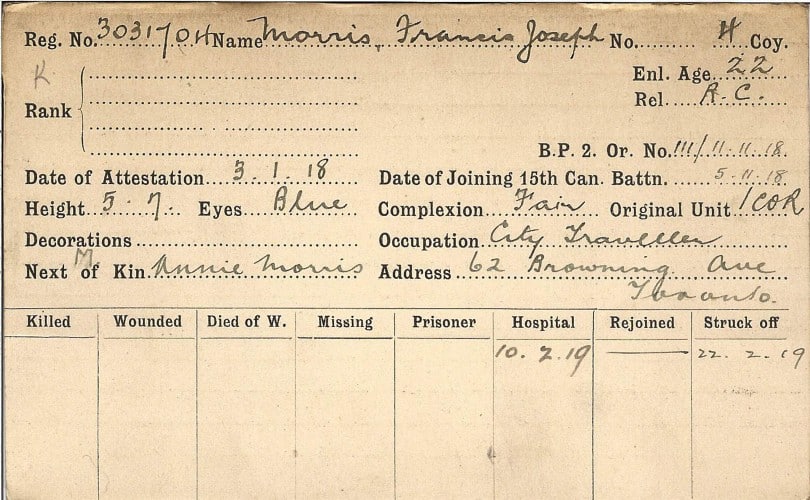 Reg. No. 3031704 Name Morris, Francis Joseph No. 4 Coy.
K Enl. Age 22
Rank Rel. R.C.
B.P. 2. Or. No. 111/11.11.18.
Date of Attestation 3.1.18 Date of Joining 15th Can. Battn. 5.11.18
Height 5.7. Eyes Blue Complexion Fair Original Unit 1COR
Decorations Occupation City Traveller
Next of Kin M. Annie Morris Address 62 Browning Ave
Toronto.
Killed Wounded Died of W. Missing Prisoner Hospital Rejoined Struck off
10.2.19 22.2.19